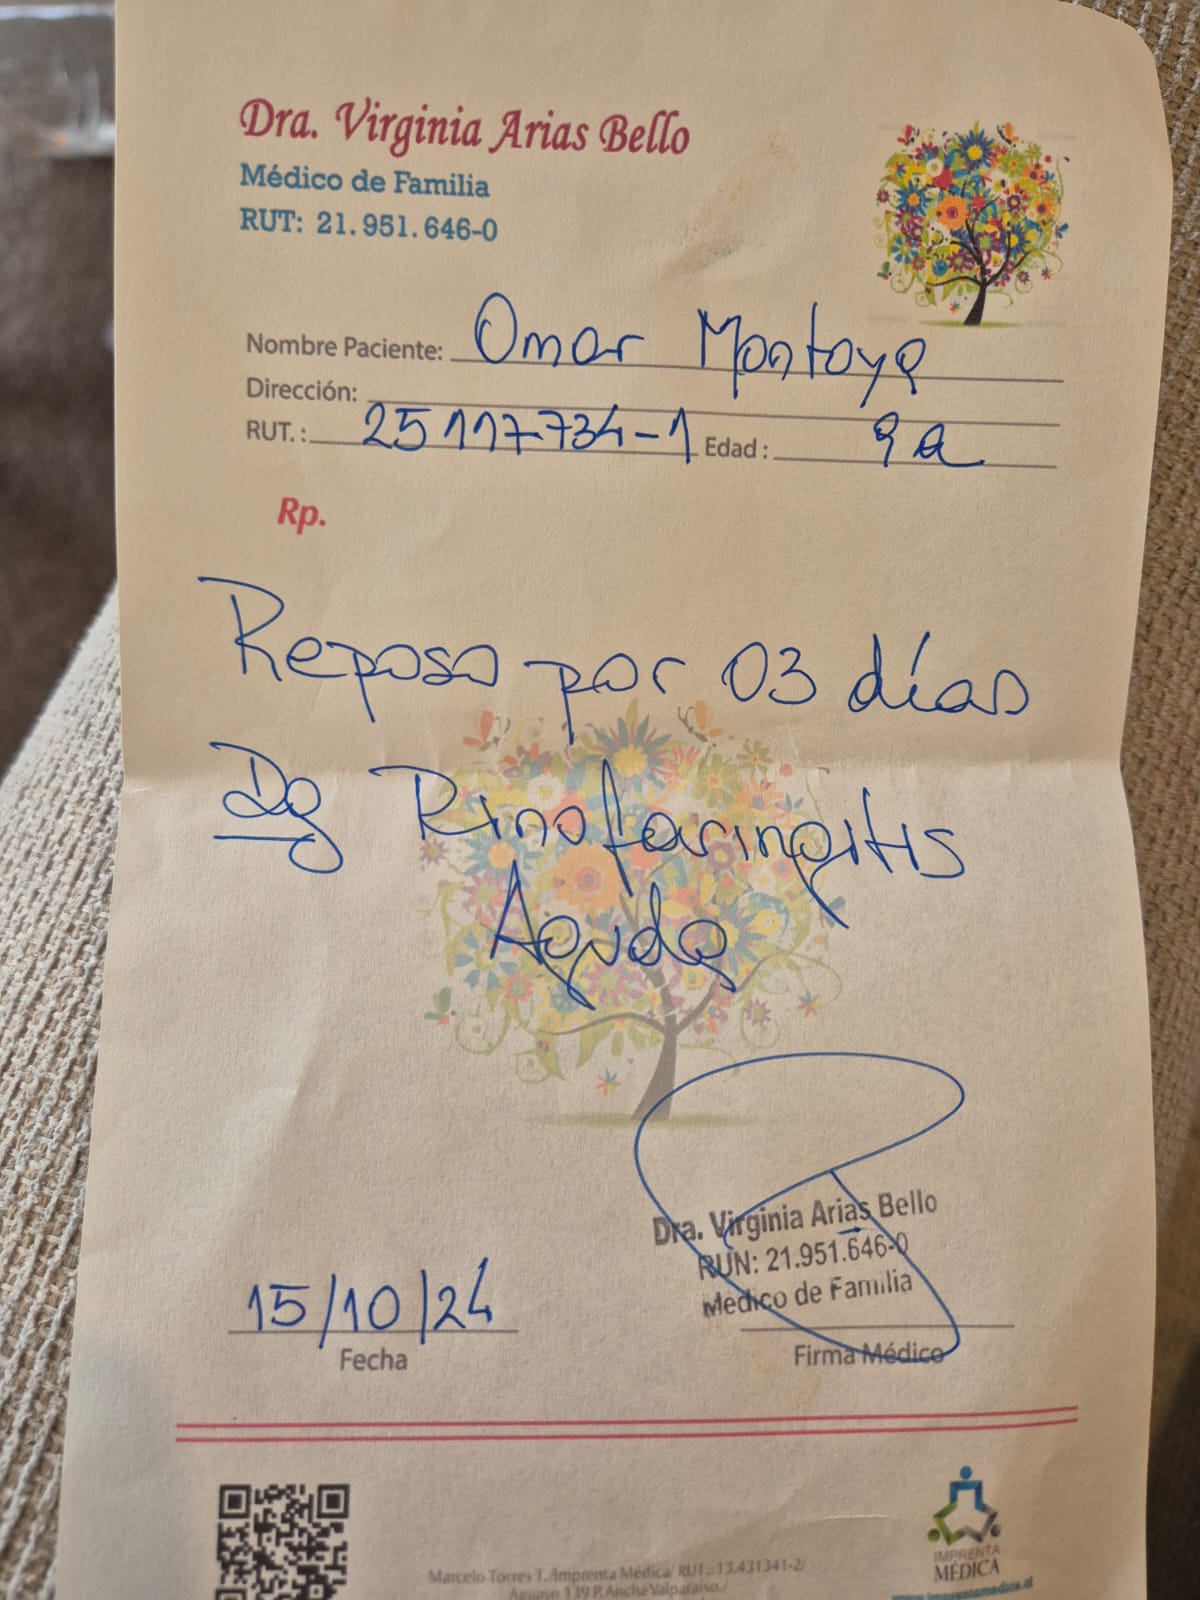 Dra. Virginia Arias Bello
Médico de Familia
RUT: 21.951.646-0
Nombre Paciente: Omar Montoya
Dirección:
RUT.: 25117734-1 Edad: 9 a
Rp.
Reposo por 03 días
Dg Rinofaringitis
Aguda
Dra. Virginia Arias Bello
RUN: 21.951.646-0
Medico de Familia
15/10/24
Fecha
Firma Médico
IMPRENTA
MÉDICA
Marcelo Torres T./Imprenta Médica/ RUT.: 13.431341-2/
Aguayo 139 P. Ancha Valparaíso./
www.imprentamedica.cl